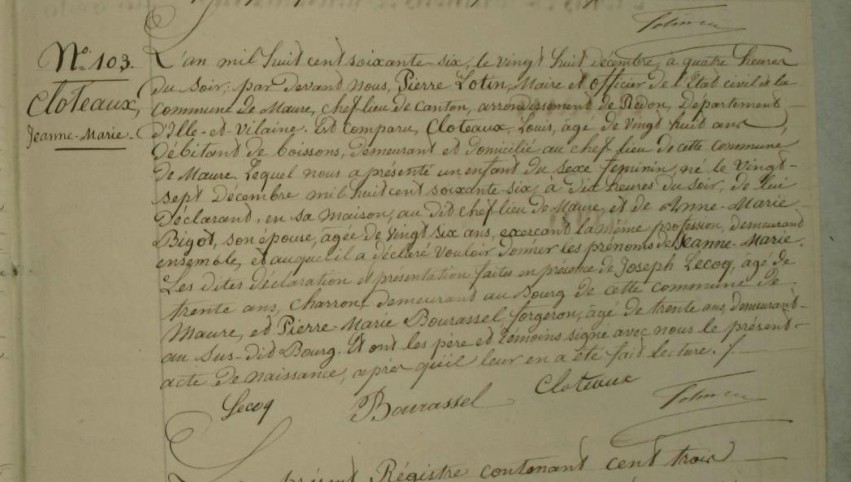 N.º 103.
Cloteaux,
Jeanne-Marie.
L'an mil huit cent soixante-six, le vingt huit décembre, a quatre heures
du soir, par devant nous, Pierre Lotin, Maire et officier de l'Etat civil de la
commune de Maure, chef-lieu de canton, arrondissement de Redon, Département
d'Ille-et-Vilaine. Est comparu, Cloteaux, Louis, âgé de vingt huit ans,
débitant de boissons, demeurant et domicilié au chef lieu de cette commune
de Maure, Lequel nous a présenté un enfant du sexe feminin, né le vingt-
sept Décembre mil huit cent soixante six, à dix heures du soir, de lui
Déclarand, en sa maison, au dit chef lieu de Maure, et de Anne-Marie
Bigot, son épouse, âgée de vingt six ans, exercant la même profession, demeurand
ensemble, et auquel il a déclaré vouloir donner les prénoms de Jeanne-Marie.
Les dites déclaration et présentation faites en présence de Joseph Lecoq, âgé de
trente ans, charron, demeurant au Bourg de cette commune de
Maure, et Pierre Marie Bourassel forgeron, âgé de trente ans, demeurant
au sus-dit Bourg. Et ont les père et témoins signé avec nous le présent
acte de naissance, après qu'il leur en a été fait lecture. /
Lecoq Bourassel Cloteaux
présent Régistre contenant cent trois